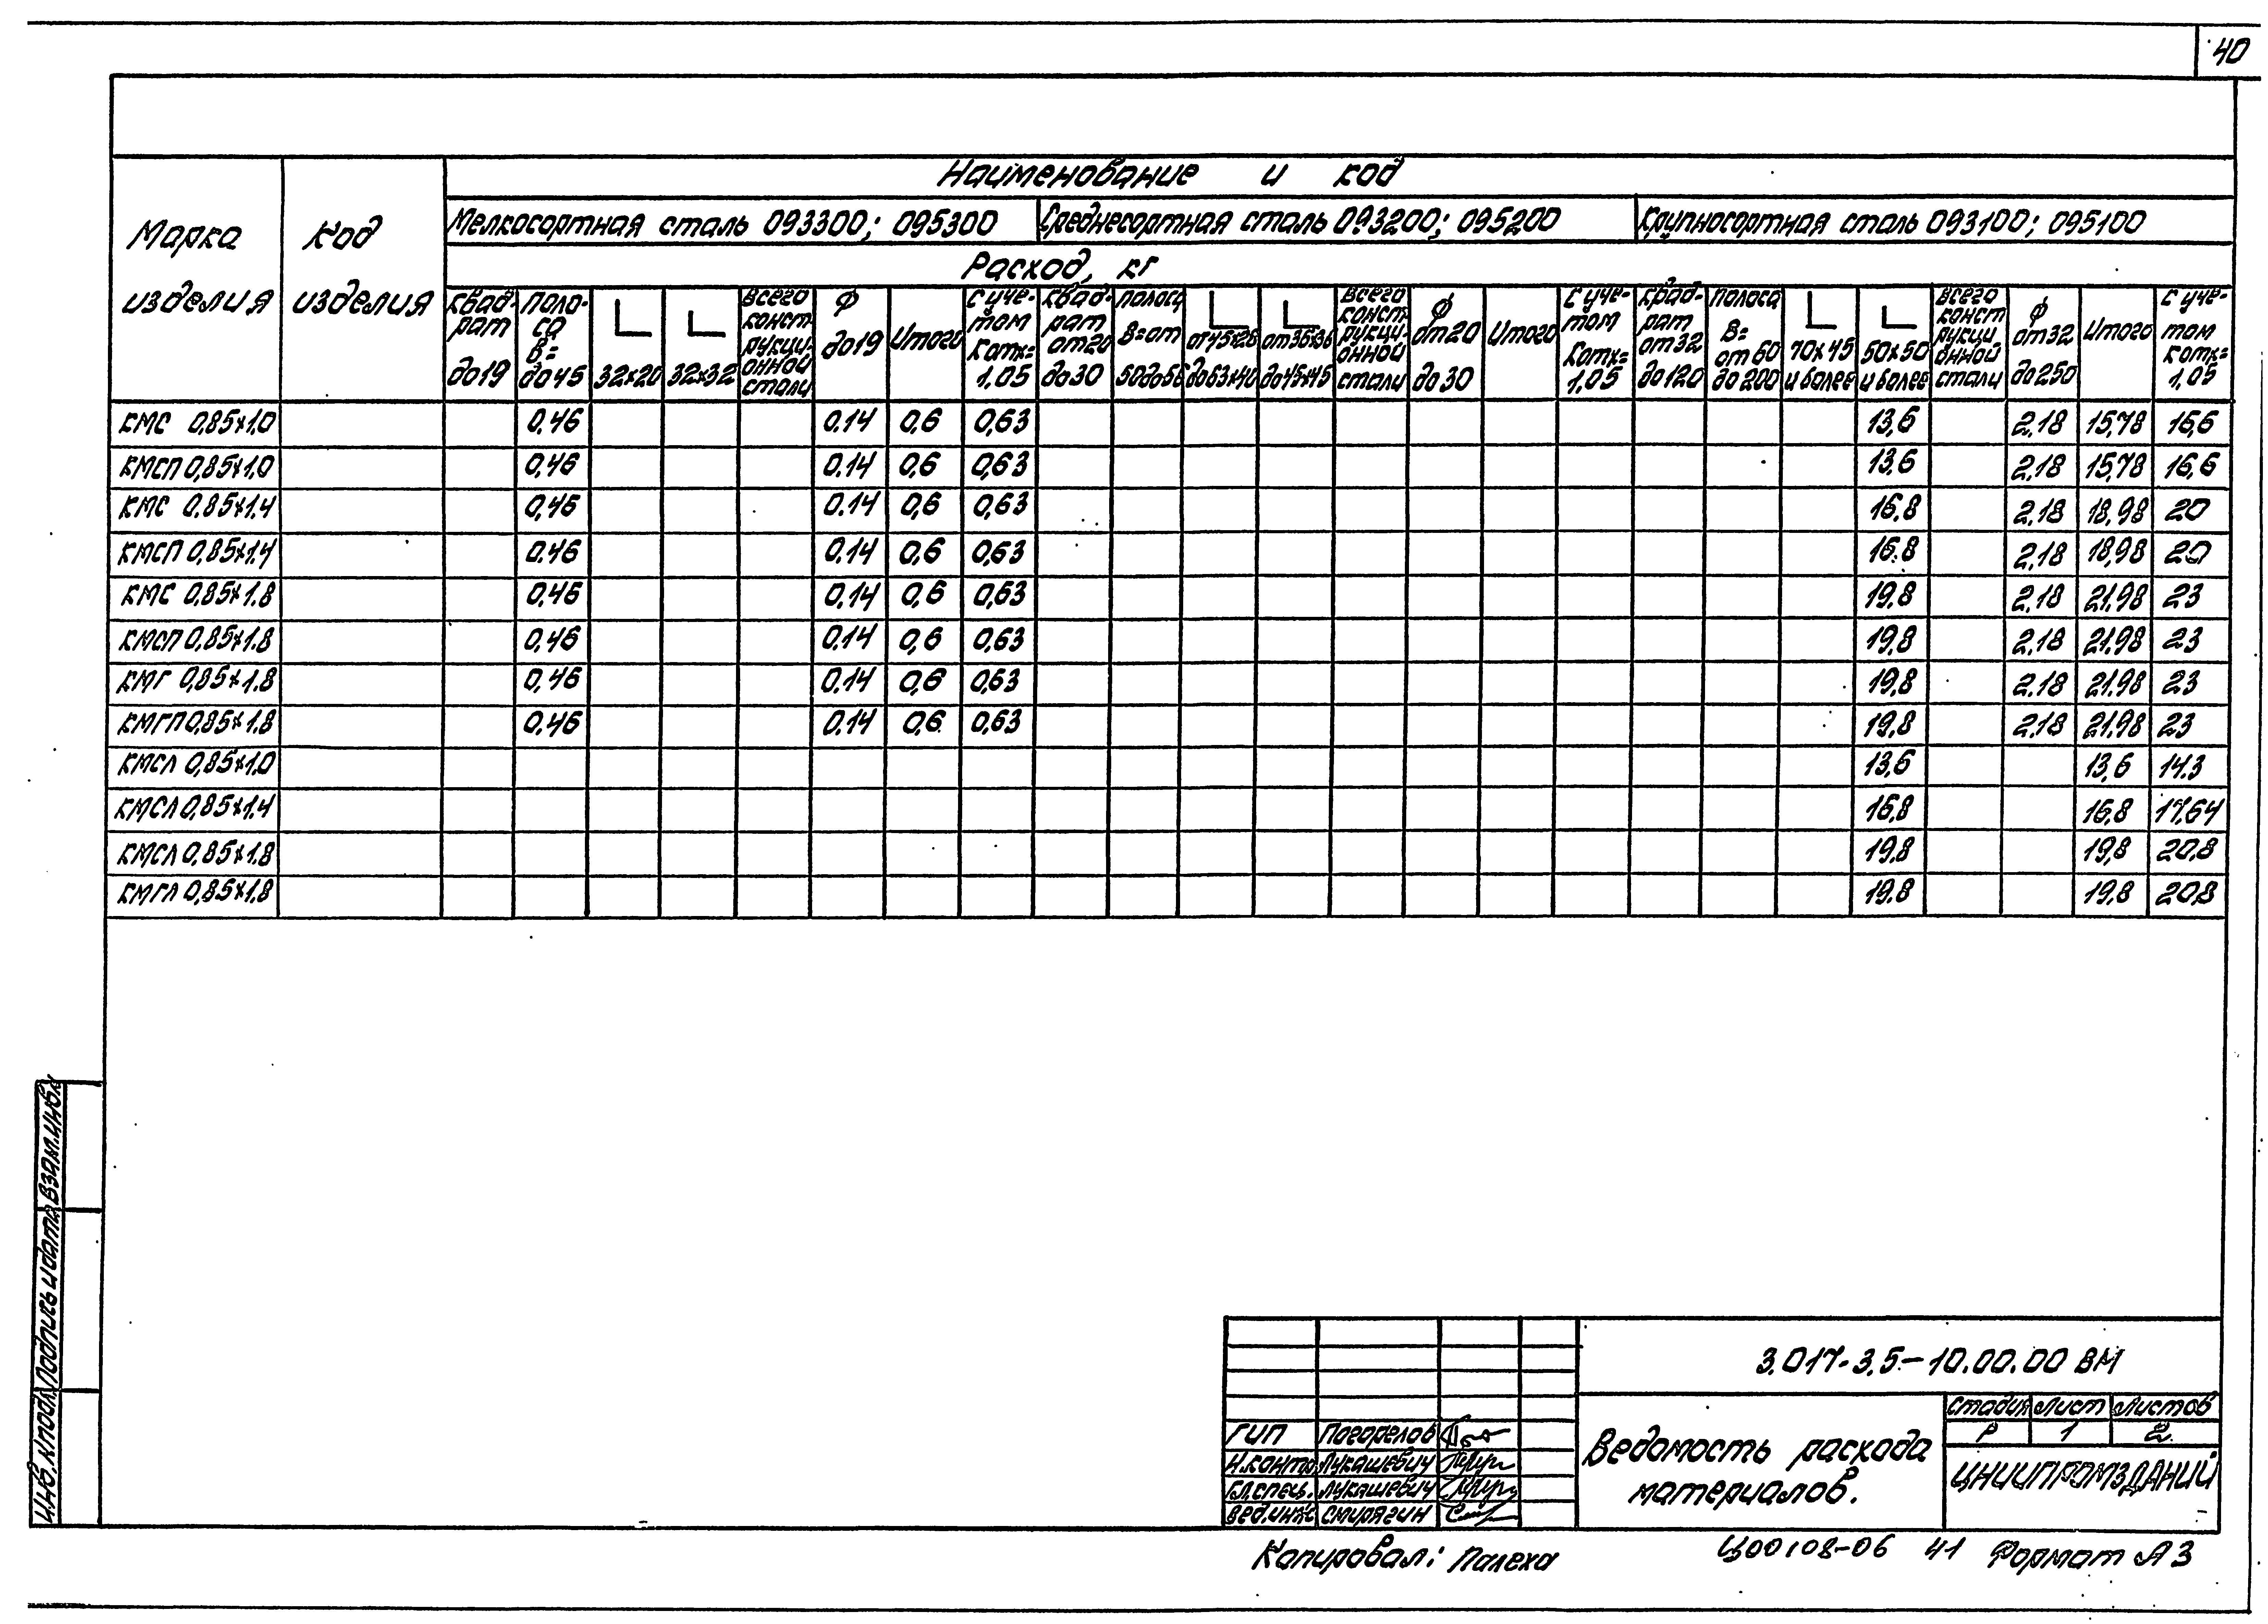 40
Наименование и код
Марка изделия
Код изделия
Мелкосортная сталь 093300; 095300
Среднесортная сталь 093200; 095200
Крупносортная сталь 093100; 095100
Расход, кг
Квадрат до 19
Полоса В= до 45
32×20
32×32
Всего конструкционной стали
Ф до 19
Итого
С учетом Котх= 1.05
Квадрат от 20 до 30
Полоса В= от 50 до 56
от 45×28 до 63×40
от 36×36 до 45×45
Всего конструкционной стали
Ф от 20 до 30
Итого
С учетом Котх= 1.05
Квадрат от 32 до 120
Полоса В= от 60 до 200
70×45 и более
50×50 и более
Всего конструкционной стали
Ф от 32 до 250
Итого
С учетом Котх= 1,05
КМС 0,85×1.0 0,46 0.14 0,6 0,63 13,6 2,18 15,78 16,6
КМСП 0,85×1,0 0,46 0.14 0,6 0,63 13,6 2,18 15,78 16,6
КМС 0.85×1.4 0,46 0.14 0,6 0,63 16.8 2,18 18,98 20
КМСП 0,85×1,4 0.46 0.14 0,6 0,63 16.8 2,18 18,98 20
КМС 0.85×1.8 0,46 0.14 0,6 0,63 19.8 2,18 21,98 23
КМСП 0,85×1.8 0,46 0.14 0,6 0,63 19,8 2,18 21,98 23
КМГ 0,85×1.8 0,46 0.14 0,6 0,63 19,8 2.18 21.98 23
КМГП 0,85×1.8 0,46 0.14 0,6 0,63 19,8 2.18 21,98 23
КМСЛ 0,85×1,0 13,6 13,6 14.3
КМСЛ 0,85×1.4 16,8 16,8 17.64
КМСЛ 0,85×1.8 19,8 19,8 20,8
КМГЛ 0,85×1.8 19.8 19,8 20,8
Взам. инв. №
Подпись и дата
Инв. № подл.
3.017-3.5-10.00.00 ВМ
Ведомость расхода
материалов.
Стадия Лист Листов
Р 1 2
ЦНИИПРОМЗДАНИЙ
ГИП Погорелов
Н.контр. Лукашевич
Гл.спец. Лукашевич
Вед.инж. Смирягин
Копировал: Палеха
Ц00108-06 41 Формат А3